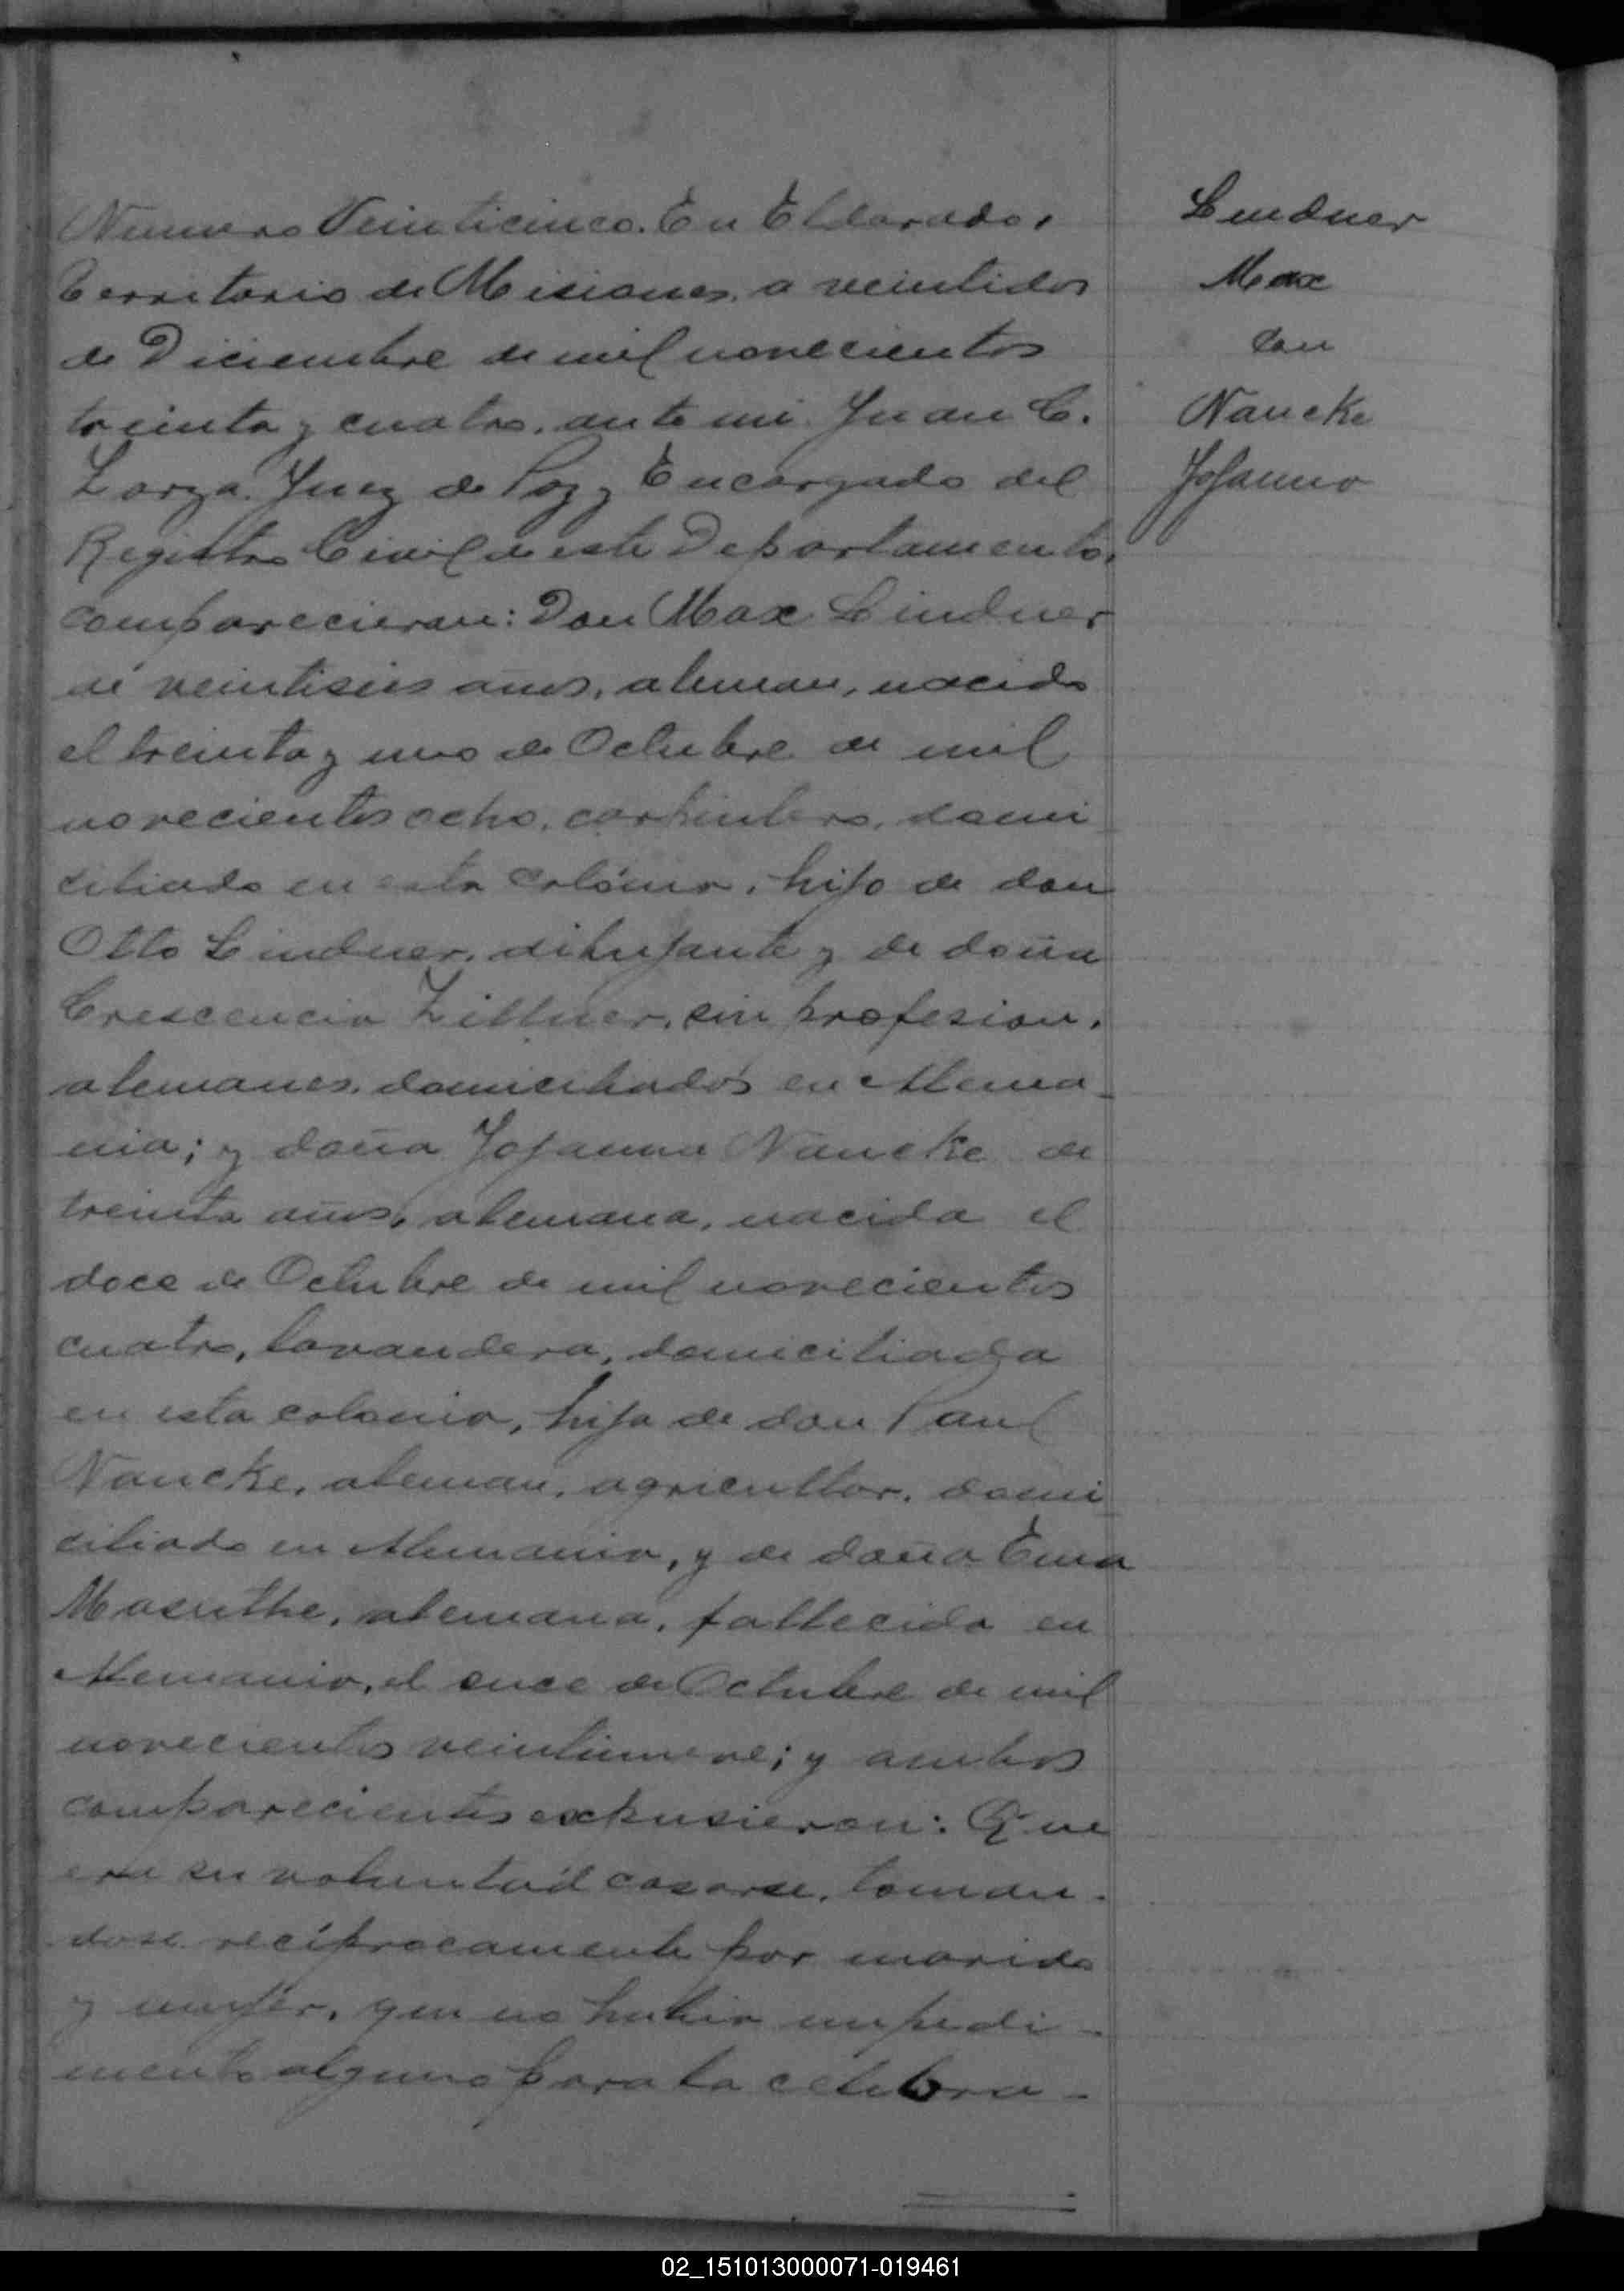 Numero Veinticinco. En Eldorado,
Territorio de Misiones, a veintidos
de Diciembre de mil novecientos
treinta y cuatro, ante mi Juan C.
Zarza, Juez de Paz y Encargado del
Registro Civil de este Departamento,
comparecieron: Don Max Lindner
de veintiseis años, aleman, nacido
el treinta y uno de Octubre de mil
novecientos ocho, carpintero, domi
ciliado en esta colonia, hijo de don
Otto Lindner, dibujante y de doña
Crescencia Zittner, sin profesion,
alemanes, domiciliados en Alema-
nia; y doña Johanna Nancke de
treinta años, alemana, nacida el
doce de Octubre de mil novecientos
cuatro, lavandera, domiciliada
en esta colonia, hija de don Paul
Nancke, aleman, agricultor, domi
ciliado en Alemania, y de doña Ema
alemana, fallecida en
Alemania, el once de Octubre de mil
novecientos veintinueve; y ambos
comparecientes expusieron: Que
era su voluntad casarse, toman-
dose recíprocamente por marido
y mujer, que no habia impedi-
mento alguno para la celebra-
Lindner
Max
con
Nancke
Johanna
02_151013000071-019461